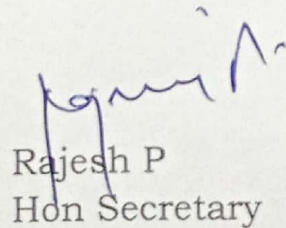 Rajesh P
Hon Secretary